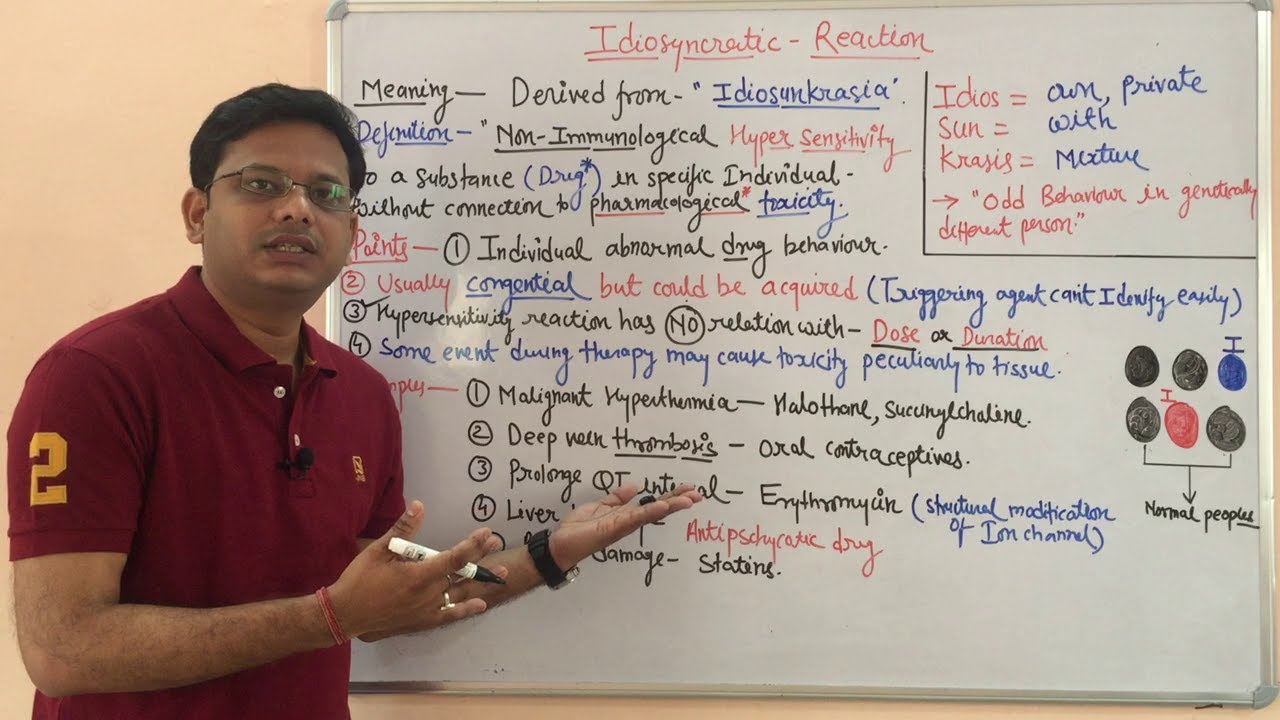 Idiosyncratic - Reaction
Meaning — Derived from - "Idiosunkrasia".
Definition - "Non-Immunological Hyper sensitivity
to a substance (Drug*) in specific Individual -
without connection to pharmacological* toxicity.
Idios = own, private
Sun = with
Krasis = Mixture
→ "Odd Behaviour in genetically
different person."
Points — ① Individual abnormal drug behaviour.
② Usually congential but could be acquired (Triggering agent can't Idenify easily)
③ Hypersensitivity reaction has NO relation with - Dose or Duration
④ Some event during therapy may cause toxicity peculiarly to tissue.
① Malignant Hyperthermia — Halothane, Succinylcholine.
② Deep vein thrombosis - Oral contraceptives.
③ Prolonge QT interval - Erythromycin (structural modification
of Ion channel)
④ Liver
Antipschycotic drug
damage - Statins.
I
I
Normal peoples
2